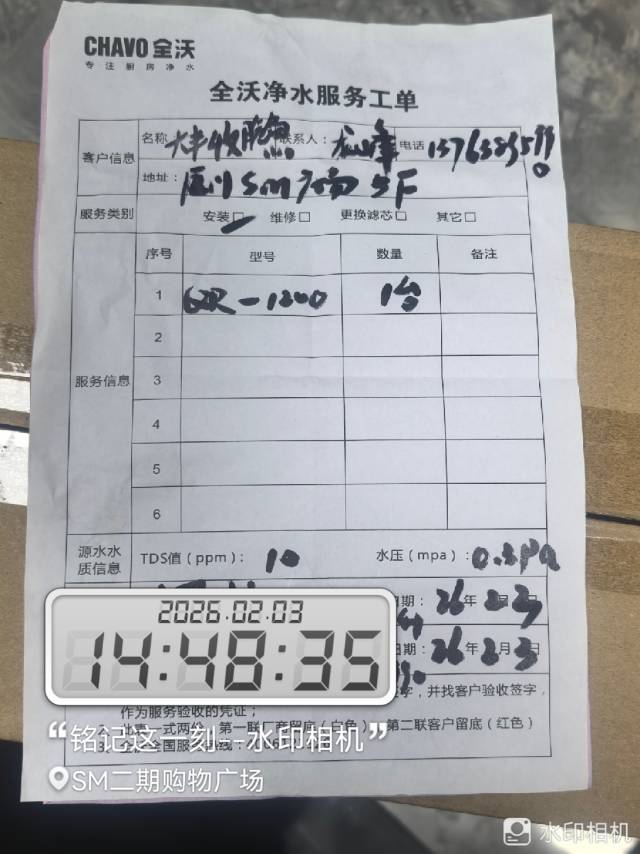 CHAVO 全沃
专注厨房净水
全沃净水服务工单
客户信息
名称 大丰收鱼 联系人： 电话
地址： 厦门SM广场5F
服务类别 安装□ 维修□ 更换滤芯□ 其它□
序号 型号 数量 备注
服务信息
1 -1200 1台
2
3
4
5
6
源水水质信息 TDS值（ppm）： 10 水压（mpa）：
日期： 26年2月3日
日期： 26年2月3日
2026.02.03
14:48:35
字，并找客户验收签字，
作为服务验收的凭证；
2、此单一式两份，第一联厂商留底（白色），第二联客户留底（红色）
“铭记这一刻--水印相机”
SM二期购物广场
水印相机